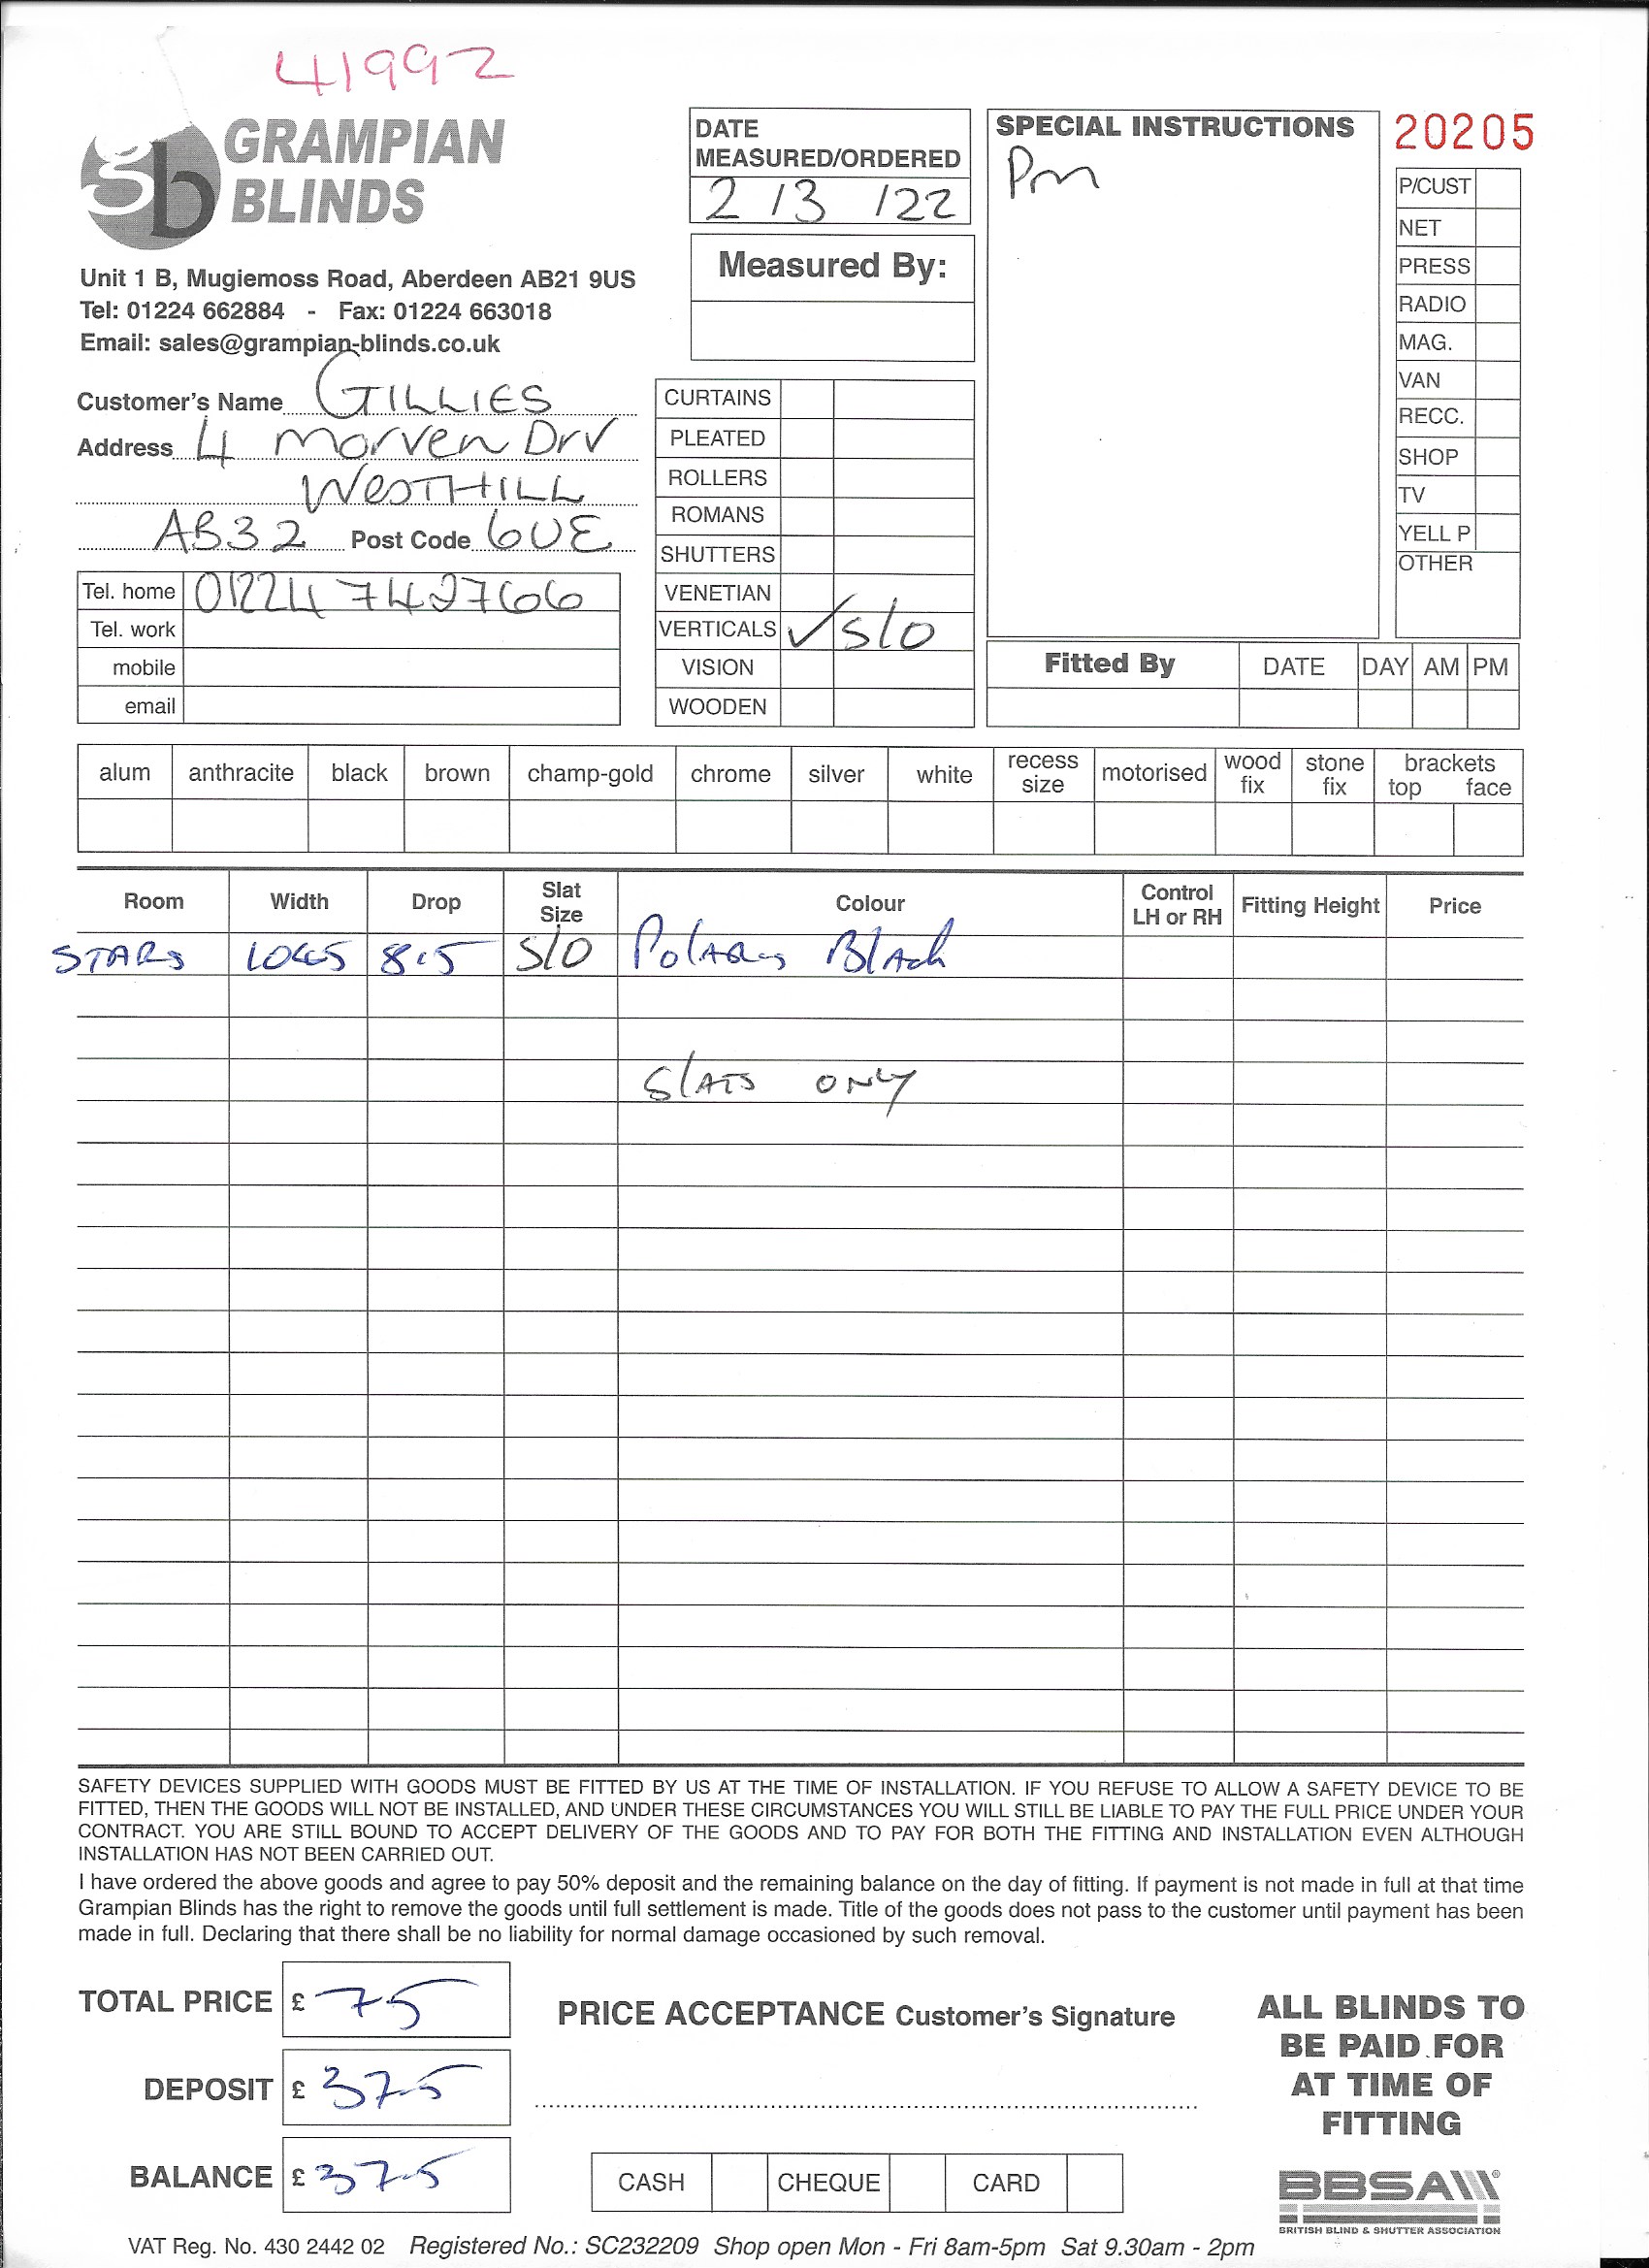 41992
GRAMPIAN
BLINDS
Unit 1 B, Mugiemoss Road, Aberdeen AB21 9US
Tel: 01224 662884 - Fax: 01224 663018
Email: sales@grampian-blinds.co.uk
Customer's Name GILLIES
Address 4 Morven Drv
WESTHILL
AB32 Post Code 6UE
Tel. home 01224 742766
Tel. work
mobile
email
DATE
MEASURED/ORDERED
2/3/22
Measured By:
CURTAINS
PLEATED
ROLLERS
ROMANS
SHUTTERS
VENETIAN
VERTICALS ✓ S/O
VISION
WOODEN
SPECIAL INSTRUCTIONS
Pm
20205
P/CUST
NET
PRESS
RADIO
MAG.
VAN
RECC.
SHOP
TV
YELL P
OTHER
Fitted By DATE DAY AM PM
alum anthracite black brown champ-gold chrome silver white recess size motorised wood fix stone fix brackets top face
Room Width Drop Slat Size Colour Control LH or RH Fitting Height Price
815 S/O Polaris Black
Slats ONLY
SAFETY DEVICES SUPPLIED WITH GOODS MUST BE FITTED BY US AT THE TIME OF INSTALLATION. IF YOU REFUSE TO ALLOW A SAFETY DEVICE TO BE
FITTED, THEN THE GOODS WILL NOT BE INSTALLED, AND UNDER THESE CIRCUMSTANCES YOU WILL STILL BE LIABLE TO PAY THE FULL PRICE UNDER YOUR
CONTRACT. YOU ARE STILL BOUND TO ACCEPT DELIVERY OF THE GOODS AND TO PAY FOR BOTH THE FITTING AND INSTALLATION EVEN ALTHOUGH
INSTALLATION HAS NOT BEEN CARRIED OUT.
I have ordered the above goods and agree to pay 50% deposit and the remaining balance on the day of fitting. If payment is not made in full at that time
Grampian Blinds has the right to remove the goods until full settlement is made. Title of the goods does not pass to the customer until payment has been
made in full. Declaring that there shall be no liability for normal damage occasioned by such removal.
TOTAL PRICE £ 75
DEPOSIT £ 37-5
BALANCE £ 37-5
PRICE ACCEPTANCE Customer's Signature
CASH CHEQUE CARD
ALL BLINDS TO
BE PAID FOR
AT TIME OF
FITTING
BBSA
BRITISH BLIND & SHUTTER ASSOCIATION
VAT Reg. No. 430 2442 02 Registered No.: SC232209 Shop open Mon - Fri 8am-5pm Sat 9.30am - 2pm